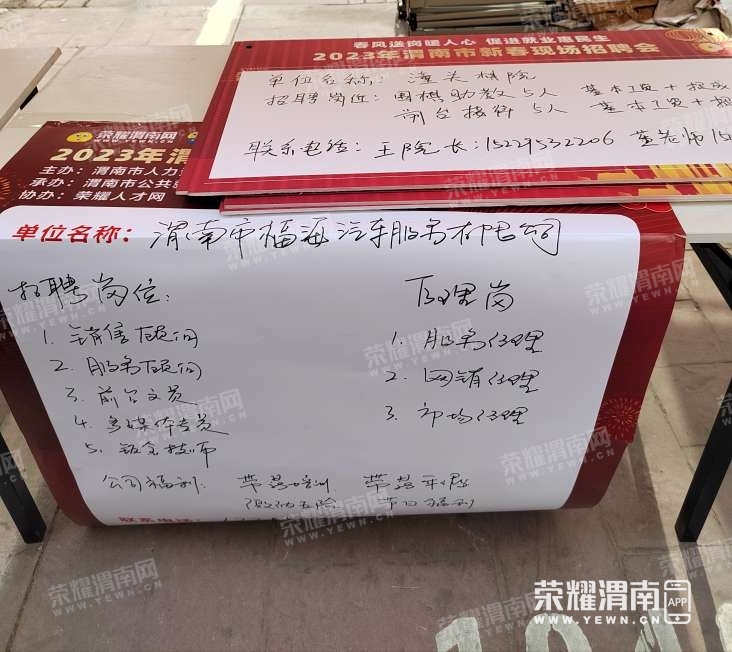 春风送岗暖人心 促进就业惠民生
2023年渭南市新春现场招聘会
单位名称: 潼关棋院
招聘岗位: 围棋助教5人 基本工资+提成
前台接待 5人 基本工资+提
联系电话: 王院长:15229532206 董老师15
荣耀渭南网
WWW.YEWN.CN
2023年渭
主办:渭南市人力
承办:渭南市公共
协办:荣耀人才网
单位名称: 渭南市福海汽车服务有限公司
招聘岗位: 管理岗
1. 销售顾问 1. 服务经理
2. 服务顾问 2. 网销经理
3. 前台文员 3. 市场经理
4. 多媒体专员
5. 钣金技师
公司福利: 带薪培训 带薪年假
缴纳五险 节日福利
联系电话:
荣耀渭南 APP
WWW.YEWN.CN